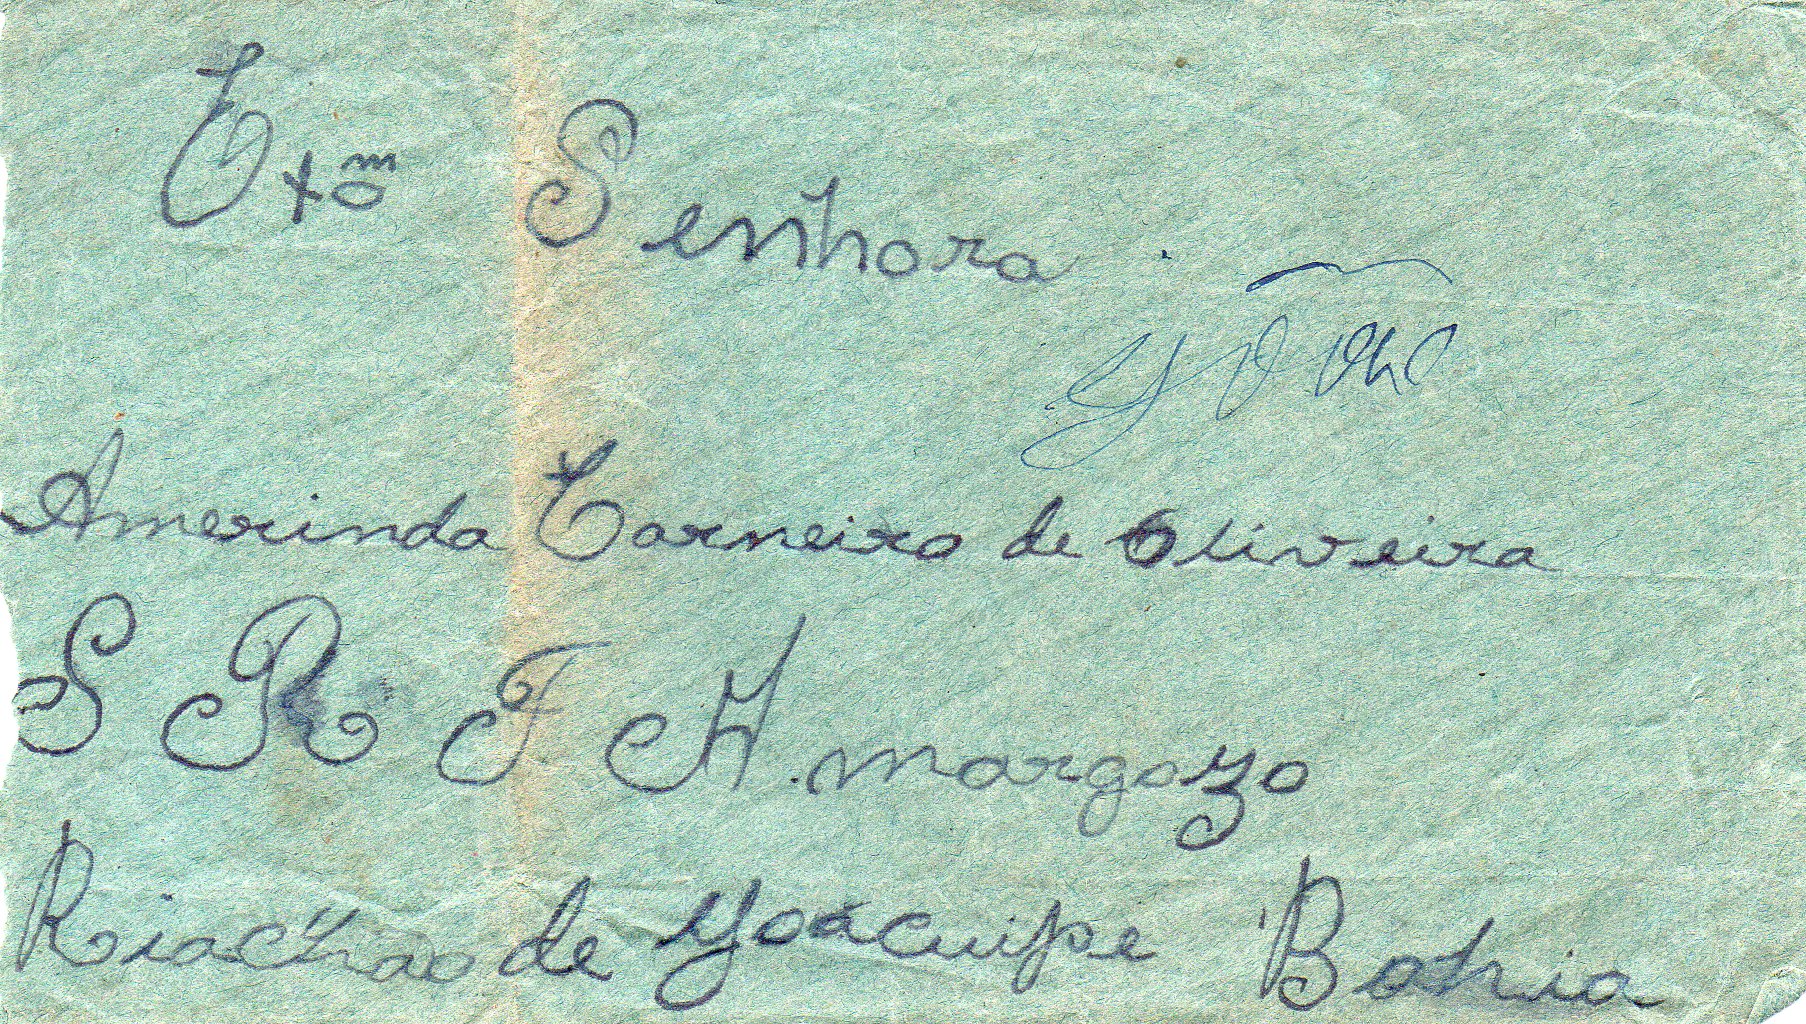 Exmo Senhora
Amerinda Carneiro de Oliveira
S R F Amargozo
Riachao de Yoácuipe Bahia